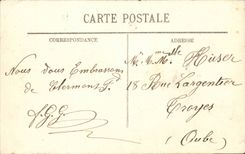 CARTE POSTALE
CORRESPONDANCE
ADRESSE
Nous Vous Embrassons
de Clermont Fd
J.G.G.
Mr Mme Mlle Huser
18 Rue Largentier
Troyes
(Aube)